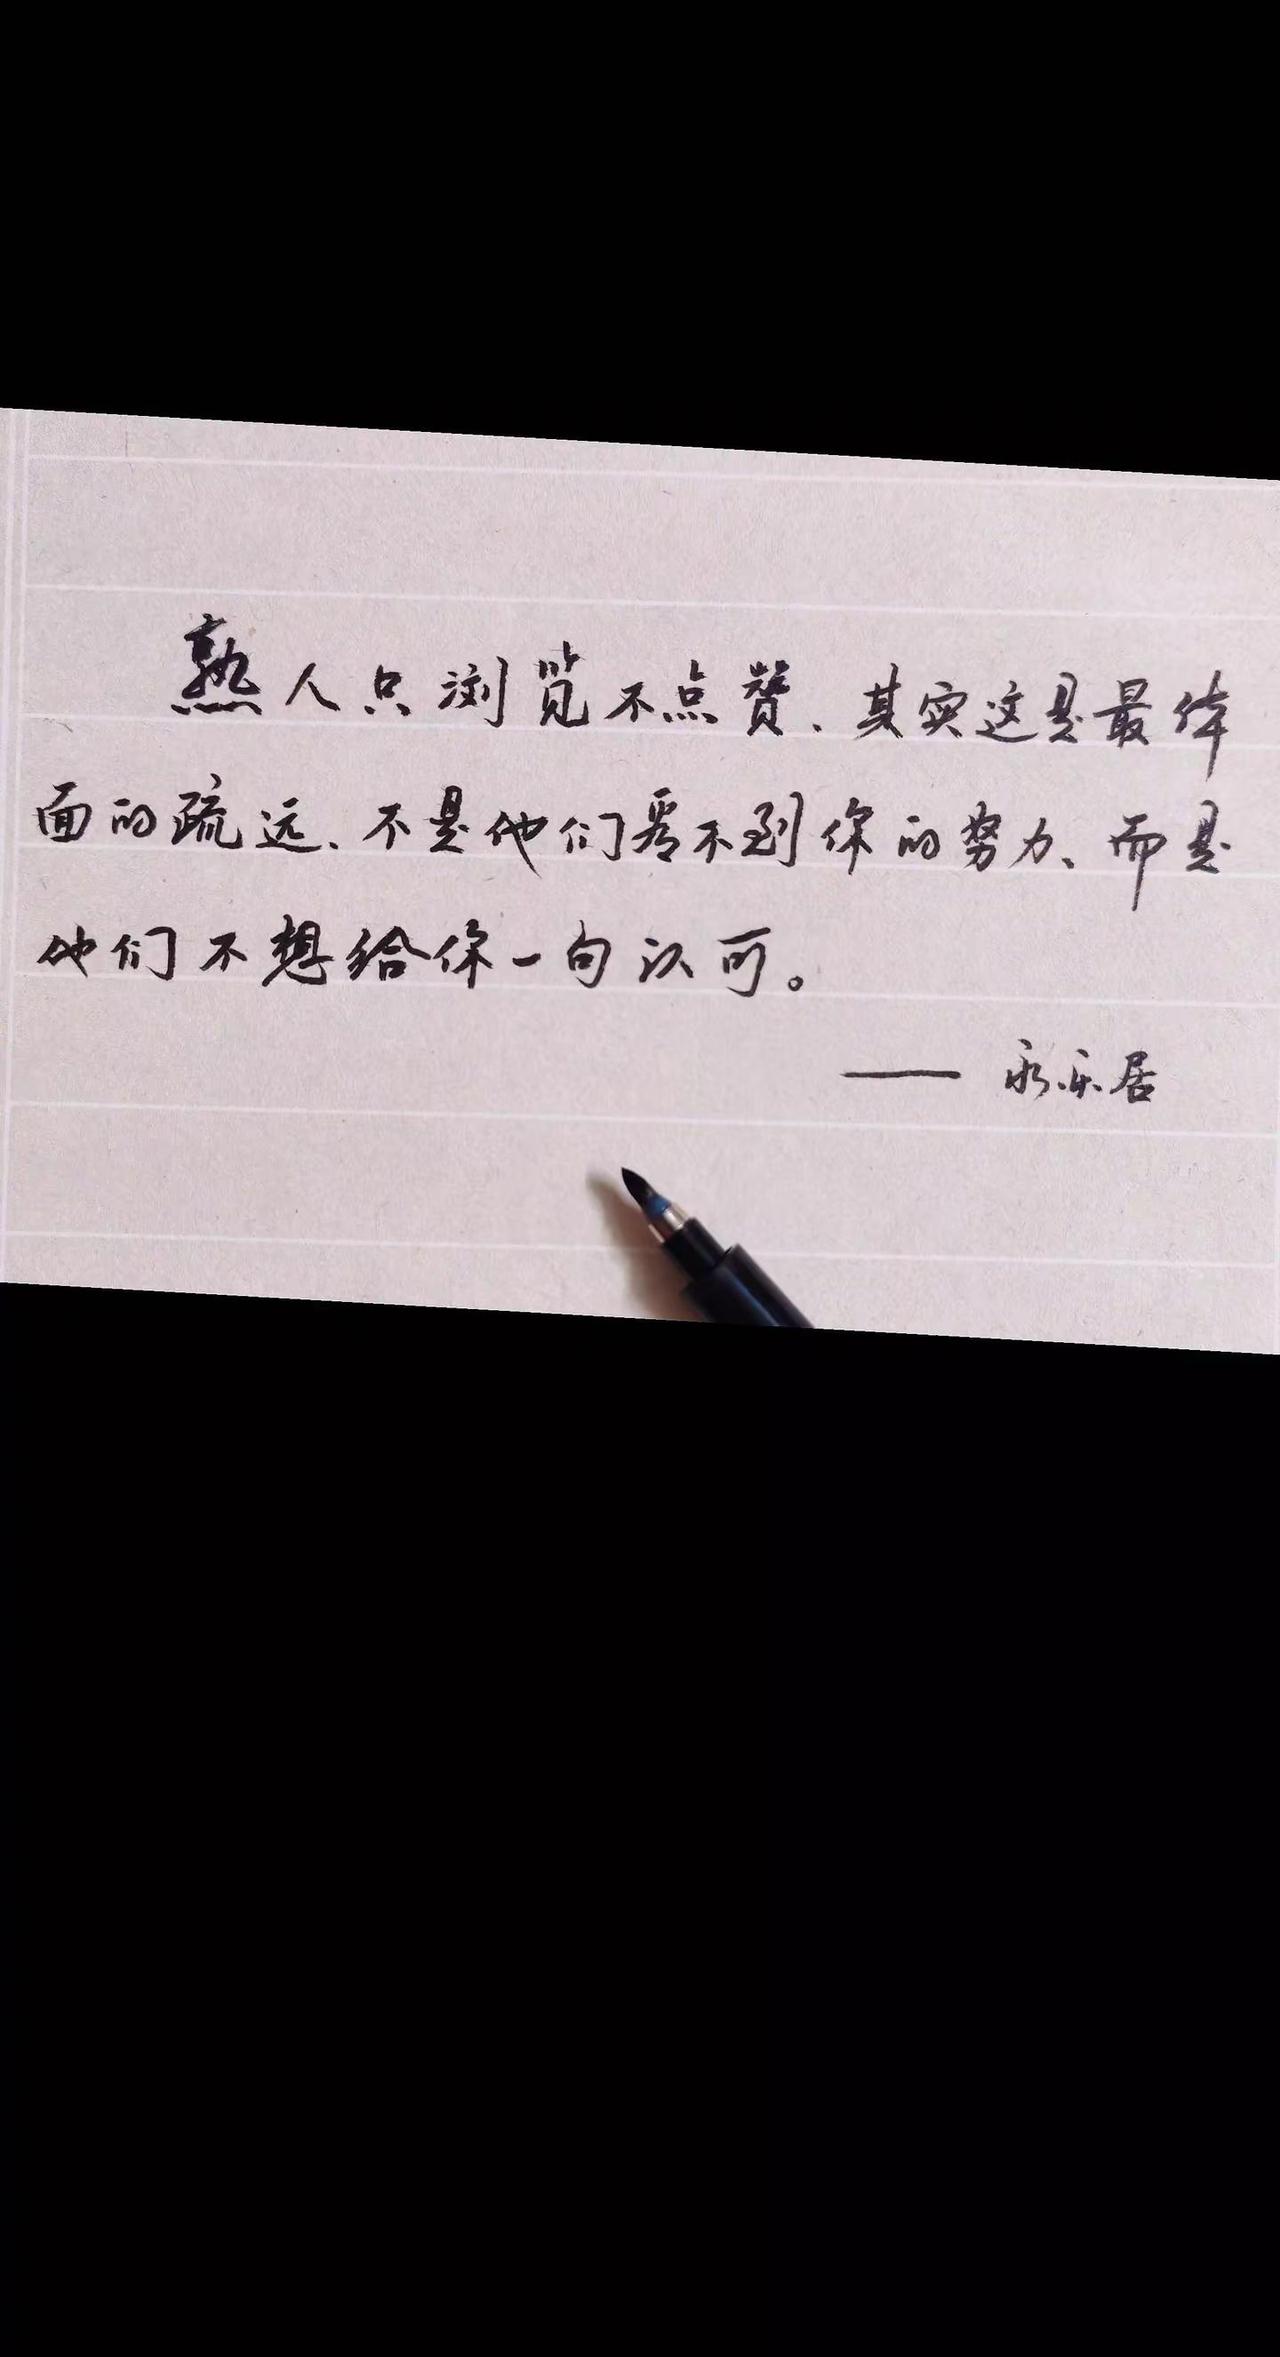 熟人只浏览不点赞、其实这是最体
面的疏远、不是他们看不到你的努力、而是
他们不想给你一句认可。
—— 永乐居